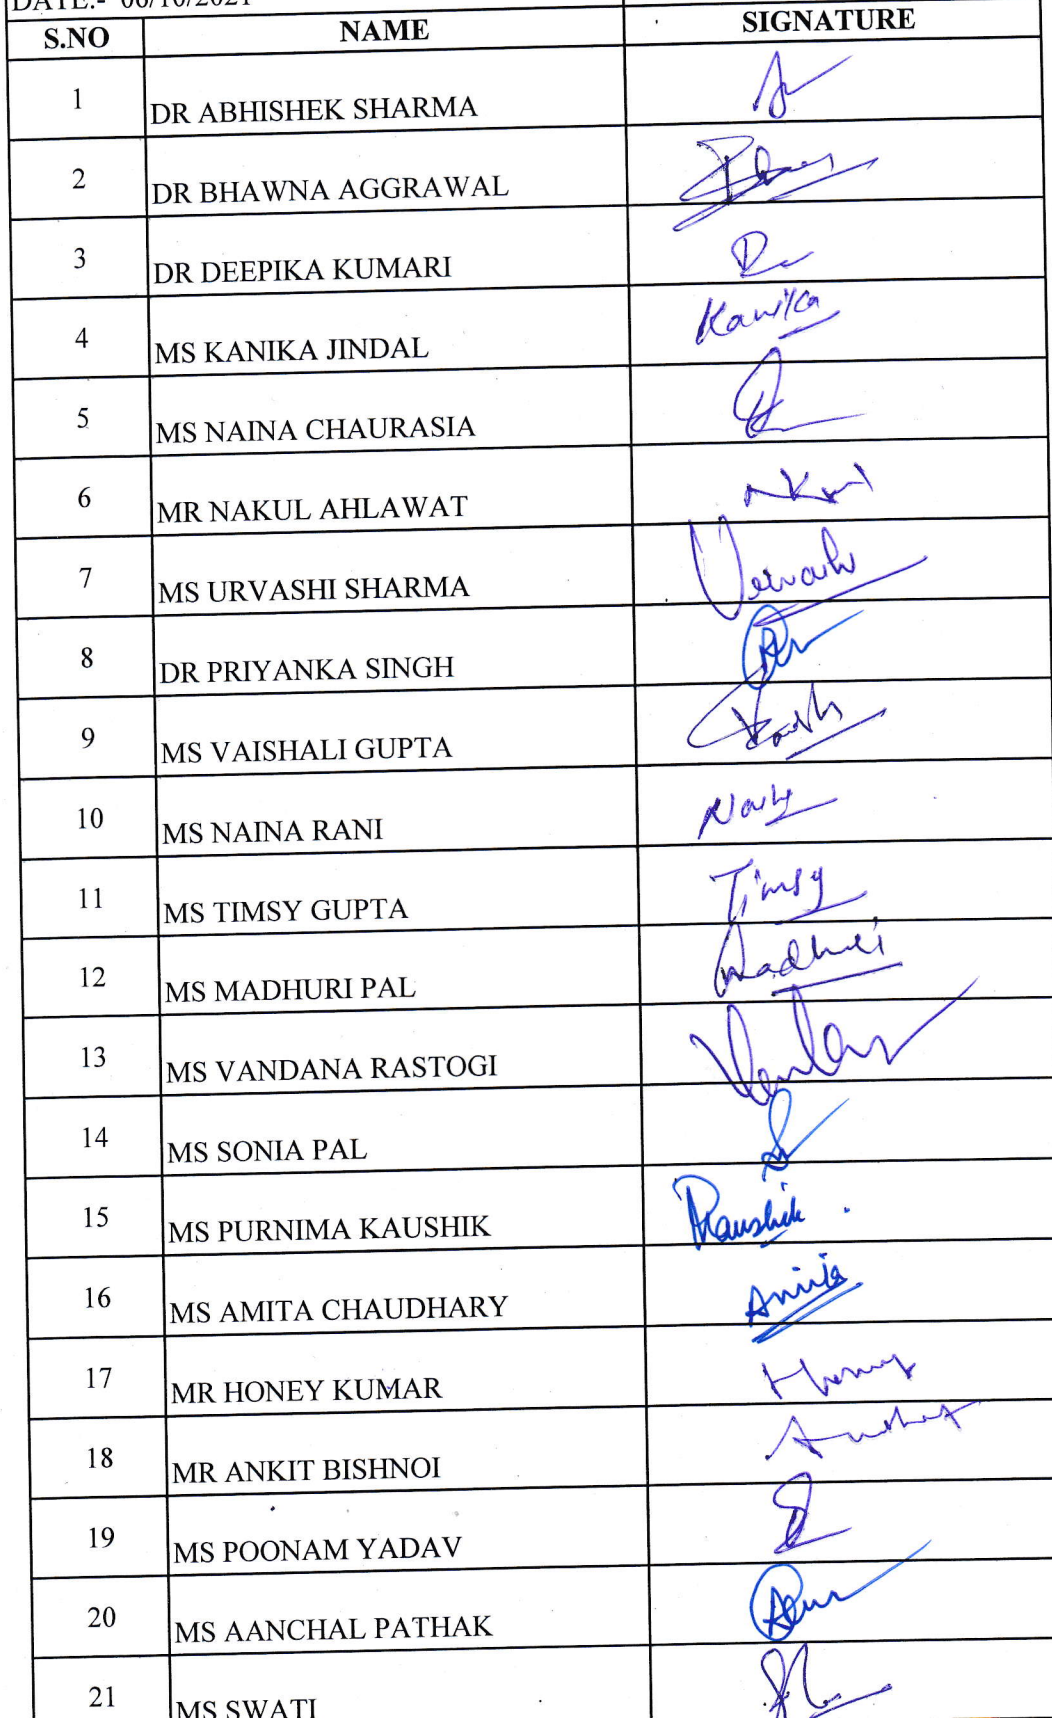 DATE:- 06/10/2021
S.NO NAME SIGNATURE
1 DR ABHISHEK SHARMA
2 DR BHAWNA AGGRAWAL
3 DR DEEPIKA KUMARI
4 MS KANIKA JINDAL Kanika
5 MS NAINA CHAURASIA
6 MR NAKUL AHLAWAT
7 MS URVASHI SHARMA Urvashi
8 DR PRIYANKA SINGH
9 MS VAISHALI GUPTA
10 MS NAINA RANI
11 MS TIMSY GUPTA Timsy
12 MS MADHURI PAL Madhuri
13 MS VANDANA RASTOGI
14 MS SONIA PAL
15 MS PURNIMA KAUSHIK PKaushik
16 MS AMITA CHAUDHARY Amita
17 MR HONEY KUMAR Honey
18 MR ANKIT BISHNOI
19 MS POONAM YADAV
20 MS AANCHAL PATHAK
21 MS SWATI